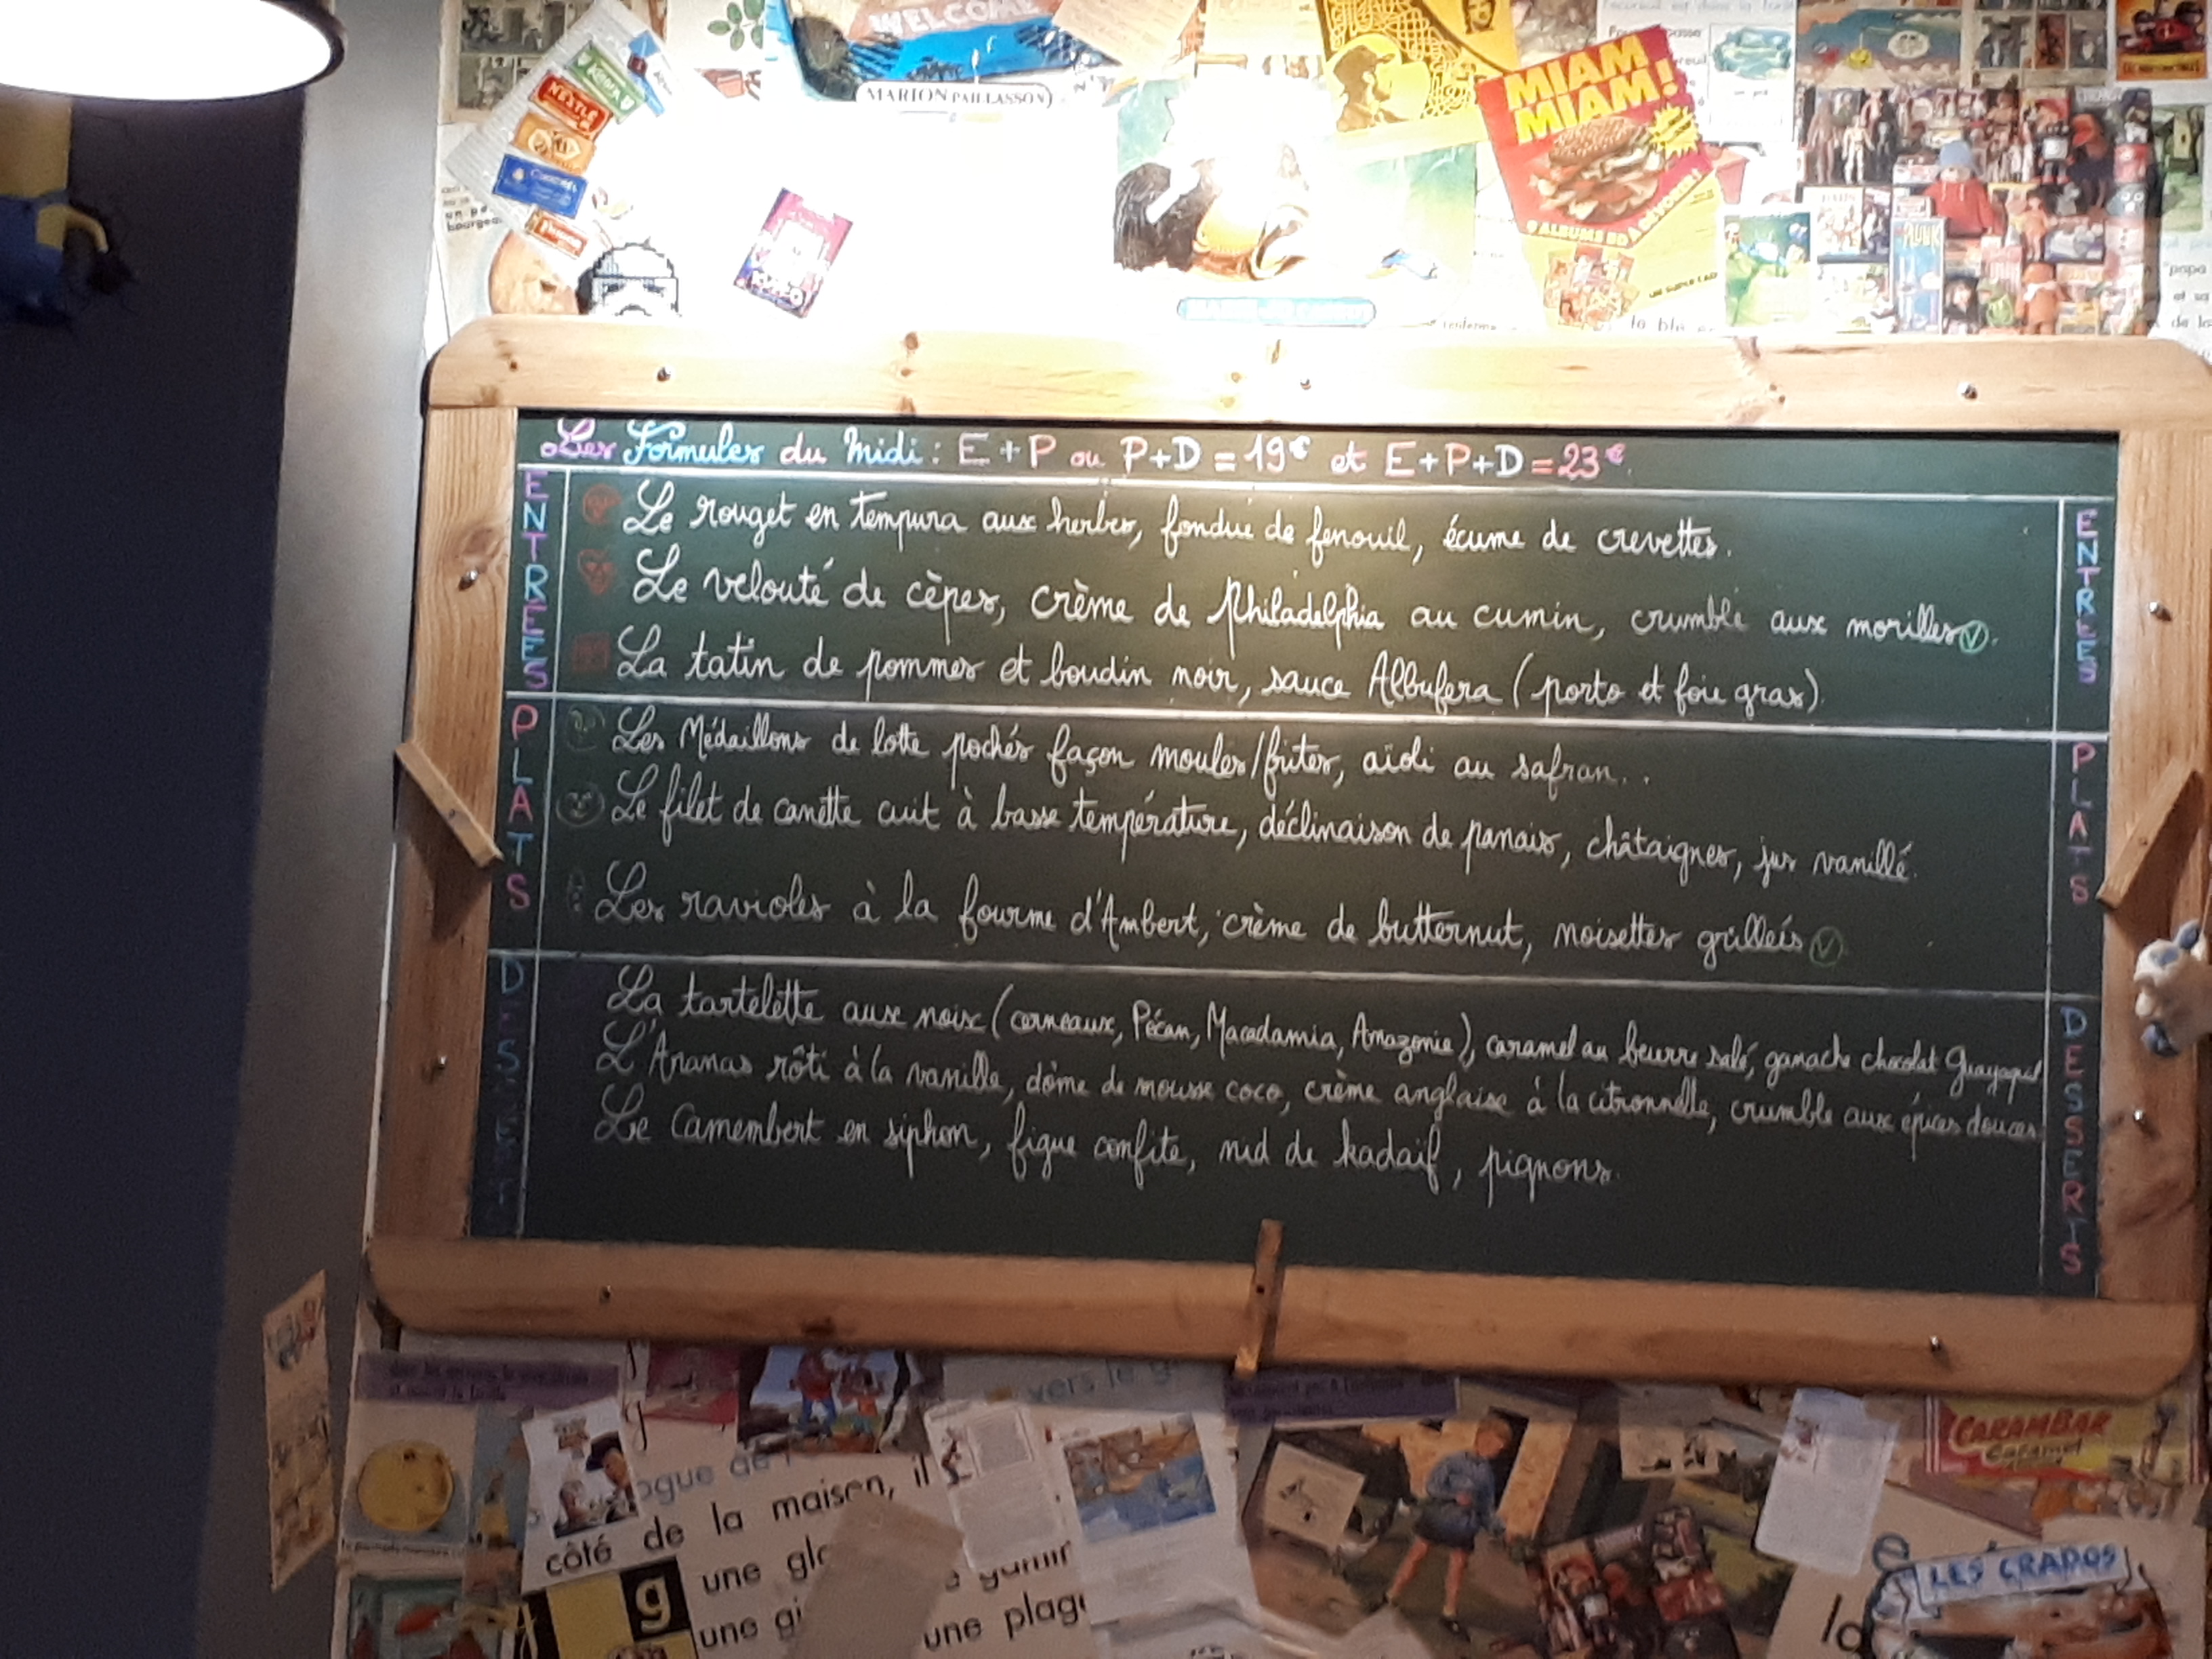 WELCOME
MARION PAILLASSON
NESTLE
MIAM
MIAM!
9 ALBUMS BD A DÉVORER!
Les Formules du Midi : E + P ou P+D = 19€ et E+P+D = 23€.
ENTREES
Le rouget en tempura aux herbes, fondue de fenouil, écume de crevettes.
Le velouté de cèpes, crème de Philadelphia au cumin, crumble aux morilles V.
La tatin de pommes et boudin noir, sauce Albufera (porto et foie gras).
ENTREES
PLATS
Les Médaillons de lotte pochés façon moules/frites, aïoli au safran..
Le filet de canette cuit à basse température, déclinaison de panais, châtaignes, jus vanillé.
Les ravioles à la fourme d'Ambert, crème de butternut, noisettes grillées V
PLATS
DESSERTS
La tartelette aux noix (cerneaux, Pécan, Macadamia, Amazonie), caramel au beurre salé, ganache chocolat Guayaquil
L'Ananas rôti à la vanille, dôme de mousse coco, crème anglaise à la citronnelle, crumble aux épices douces
Le Camembert en siphon, figue confite, nid de kadaïf, pignons.
DESSERTS
vers le g
CARAMBAR
Caramel
côté de la maison, il
g
une glo
une gi
une plag
LES CRADOS
la